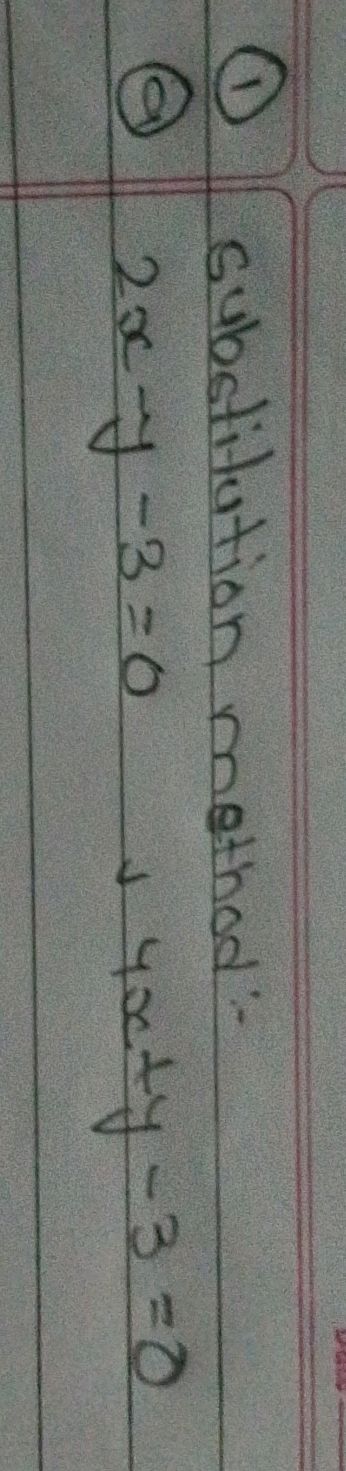 ① substitution method :-
ⓐ 2x - y - 3 = 0 , 4x + y - 3 = 0